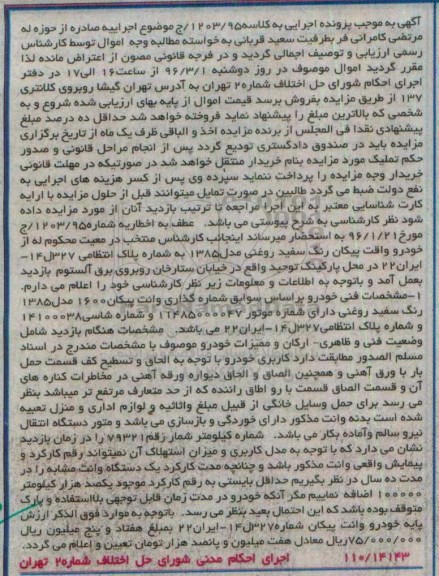 آگهی به موجب پرونده اجرایی به کلاسه۱۲۰۳/۹۵/ج موضوع اجراییه صادره از حوزه له
مرتضی کامرانی فر بطرفیت سعید قربانی به خواسته مطالبه وجه اموال توسط کارشناس
رسمی ارزیابی و توصیف اجمالی گردید و در فرجه قانونی مصون از اعتراض مانده لذا
مقرر گردید اموال موصوف در روز دوشنبه ۹۶/۳/۱ از ساعت۱۶ الی۱۷ در دفتر
اجرای احکام شورای حل اختلاف شماره۲ تهران به آدرس تهران گیشا روبروی کلانتری
۱۳۷ از طریق مزایده بفروش برسد قیمت اموال از پایه بهای ارزیابی شده شروع و به
شخصی که بالاترین مبلغ را پیشنهاد نماید فروخته خواهد شد حداقل ده درصد مبلغ
پیشنهادی نقدا فی المجلس از برنده مزایده اخذ و الباقی ظرف یک ماه از تاریخ برگزاری
مزایده باید در صندوق دادگستری تودیع گردد پس از انجام مراحل قانونی و صدور
حکم تملیک مورد مزایده بنام خریدار منتقل خواهد شد در صورتیکه در مهلت قانونی
خریدار وجه مزایده را پرداخت ننماید سپرده وی پس از کسر هزینه های اجرایی به
نفع دولت ضبط می گردد طالبین در صورت تمایل میتوانند قبل از حلول مزایده با ارایه
کارت شناسایی معتبر به این اجرا مراجعه تا ترتیب بازدید آنان از مورد مزایده داده
شود نظر کارشناسی به شرح پیوستی می باشد. عطف به اخطاریه شماره۱۲۰۳/۹۵/ج
مورخ۹۶/۱/۲۱ به استحضار میرساند اینجانب کارشناس منتخب در معیت محکوم له از
خودرو وانت پیکان رنگ سفید روغنی مدل۱۳۸۵ به شماره پلاک انتظامی ۳۲۷ل۱۴-
ایران۲۲ در محل پارکینگ توحید واقع در خیابان ستارخان روبروی برق آلستوم بازدید
بعمل آمد و باتوجه به اطلاعات و معلومات زیر نظر کارشناسی خود را اعلام می دارم.
۱-مشخصات فنی خودرو براساس سوابق شماره گذاری وانت پیکان۱۶۰۰ مدل۱۳۸۵
رنگ سفید روغنی دارای شماره موتور ۱۱۴۸۵۰۰۰۰۴۷ و شماره شاسی۱۴۱۰۰۰۳۸
و شماره پلاک انتظامی۳۲۷ل۱۴-ایران۲۲ می باشد. مشخصات هنگام بازدید شامل
وضعیت فنی و ظاهری- ارکان و ممیزات خودرو موصوف با مشخصات مندرج در اسناد
مسلم الصدور مطابقت دارد کاربری خودرو با توجه به الحاق و تسطیح کف قسمت حمل
بار با ورق آهنی و همچنین الصاق و الحاق دیواره ورقه آهنی در مخاطرات کناره های
آن و قسمت الصاق قسمت با رو اطاق راننده که از حد متعارف مرتفع تر میباشد بنظر
می رسد برای حمل وسایل خانگی از قبیل مبلغ واثاثیه و لوازم اداری و منزل تعبیه
شده است بدنه وانت مذکور دارای خوردگی و بازسازی می باشد و متور دستگاه انتقال
نیرو سالم وآماده بکار می باشد. شماره کیلومتر شمار رقم۷۹۳۲۱ را در زمان بازدید
نشان می دارد که با توجه به مدل کاربری و میزان استهلاک آن نمیتواند رقم کارکرد و
پیمایش واقعی وانت مذکور باشد و چنانچه مدت کارکرد یک دستگاه وانت مشابه را در
مدت ده سال در نظر بگیریم حداقل بایستی به رقم کارکرد موجود یکصد هزار کیلومتر
۱۰۰۰۰۰ اضافه نماییم مگر آنکه خودرو در مدت زمان قابل توجهی بلااستفاده و پارک
متوقف بوده باشد که این احتمال بعید بنظر می رسد. باتوجه به موارد فوق الذکر ارزش
پایه خودرو وانت پیکان شماره۳۲۷ل۱۴-ایران۲۲ بمبلغ هفتاد و پنج میلیون ریال
۷۵/۰۰۰/۰۰۰ریال معادل هفت میلیون و پانصد هزار تومان تعیین و اعلام می گردد.
۱۱۰/۱۴۱۴۳ اجرای احکام مدنی شورای حل اختلاف شماره۲ تهران